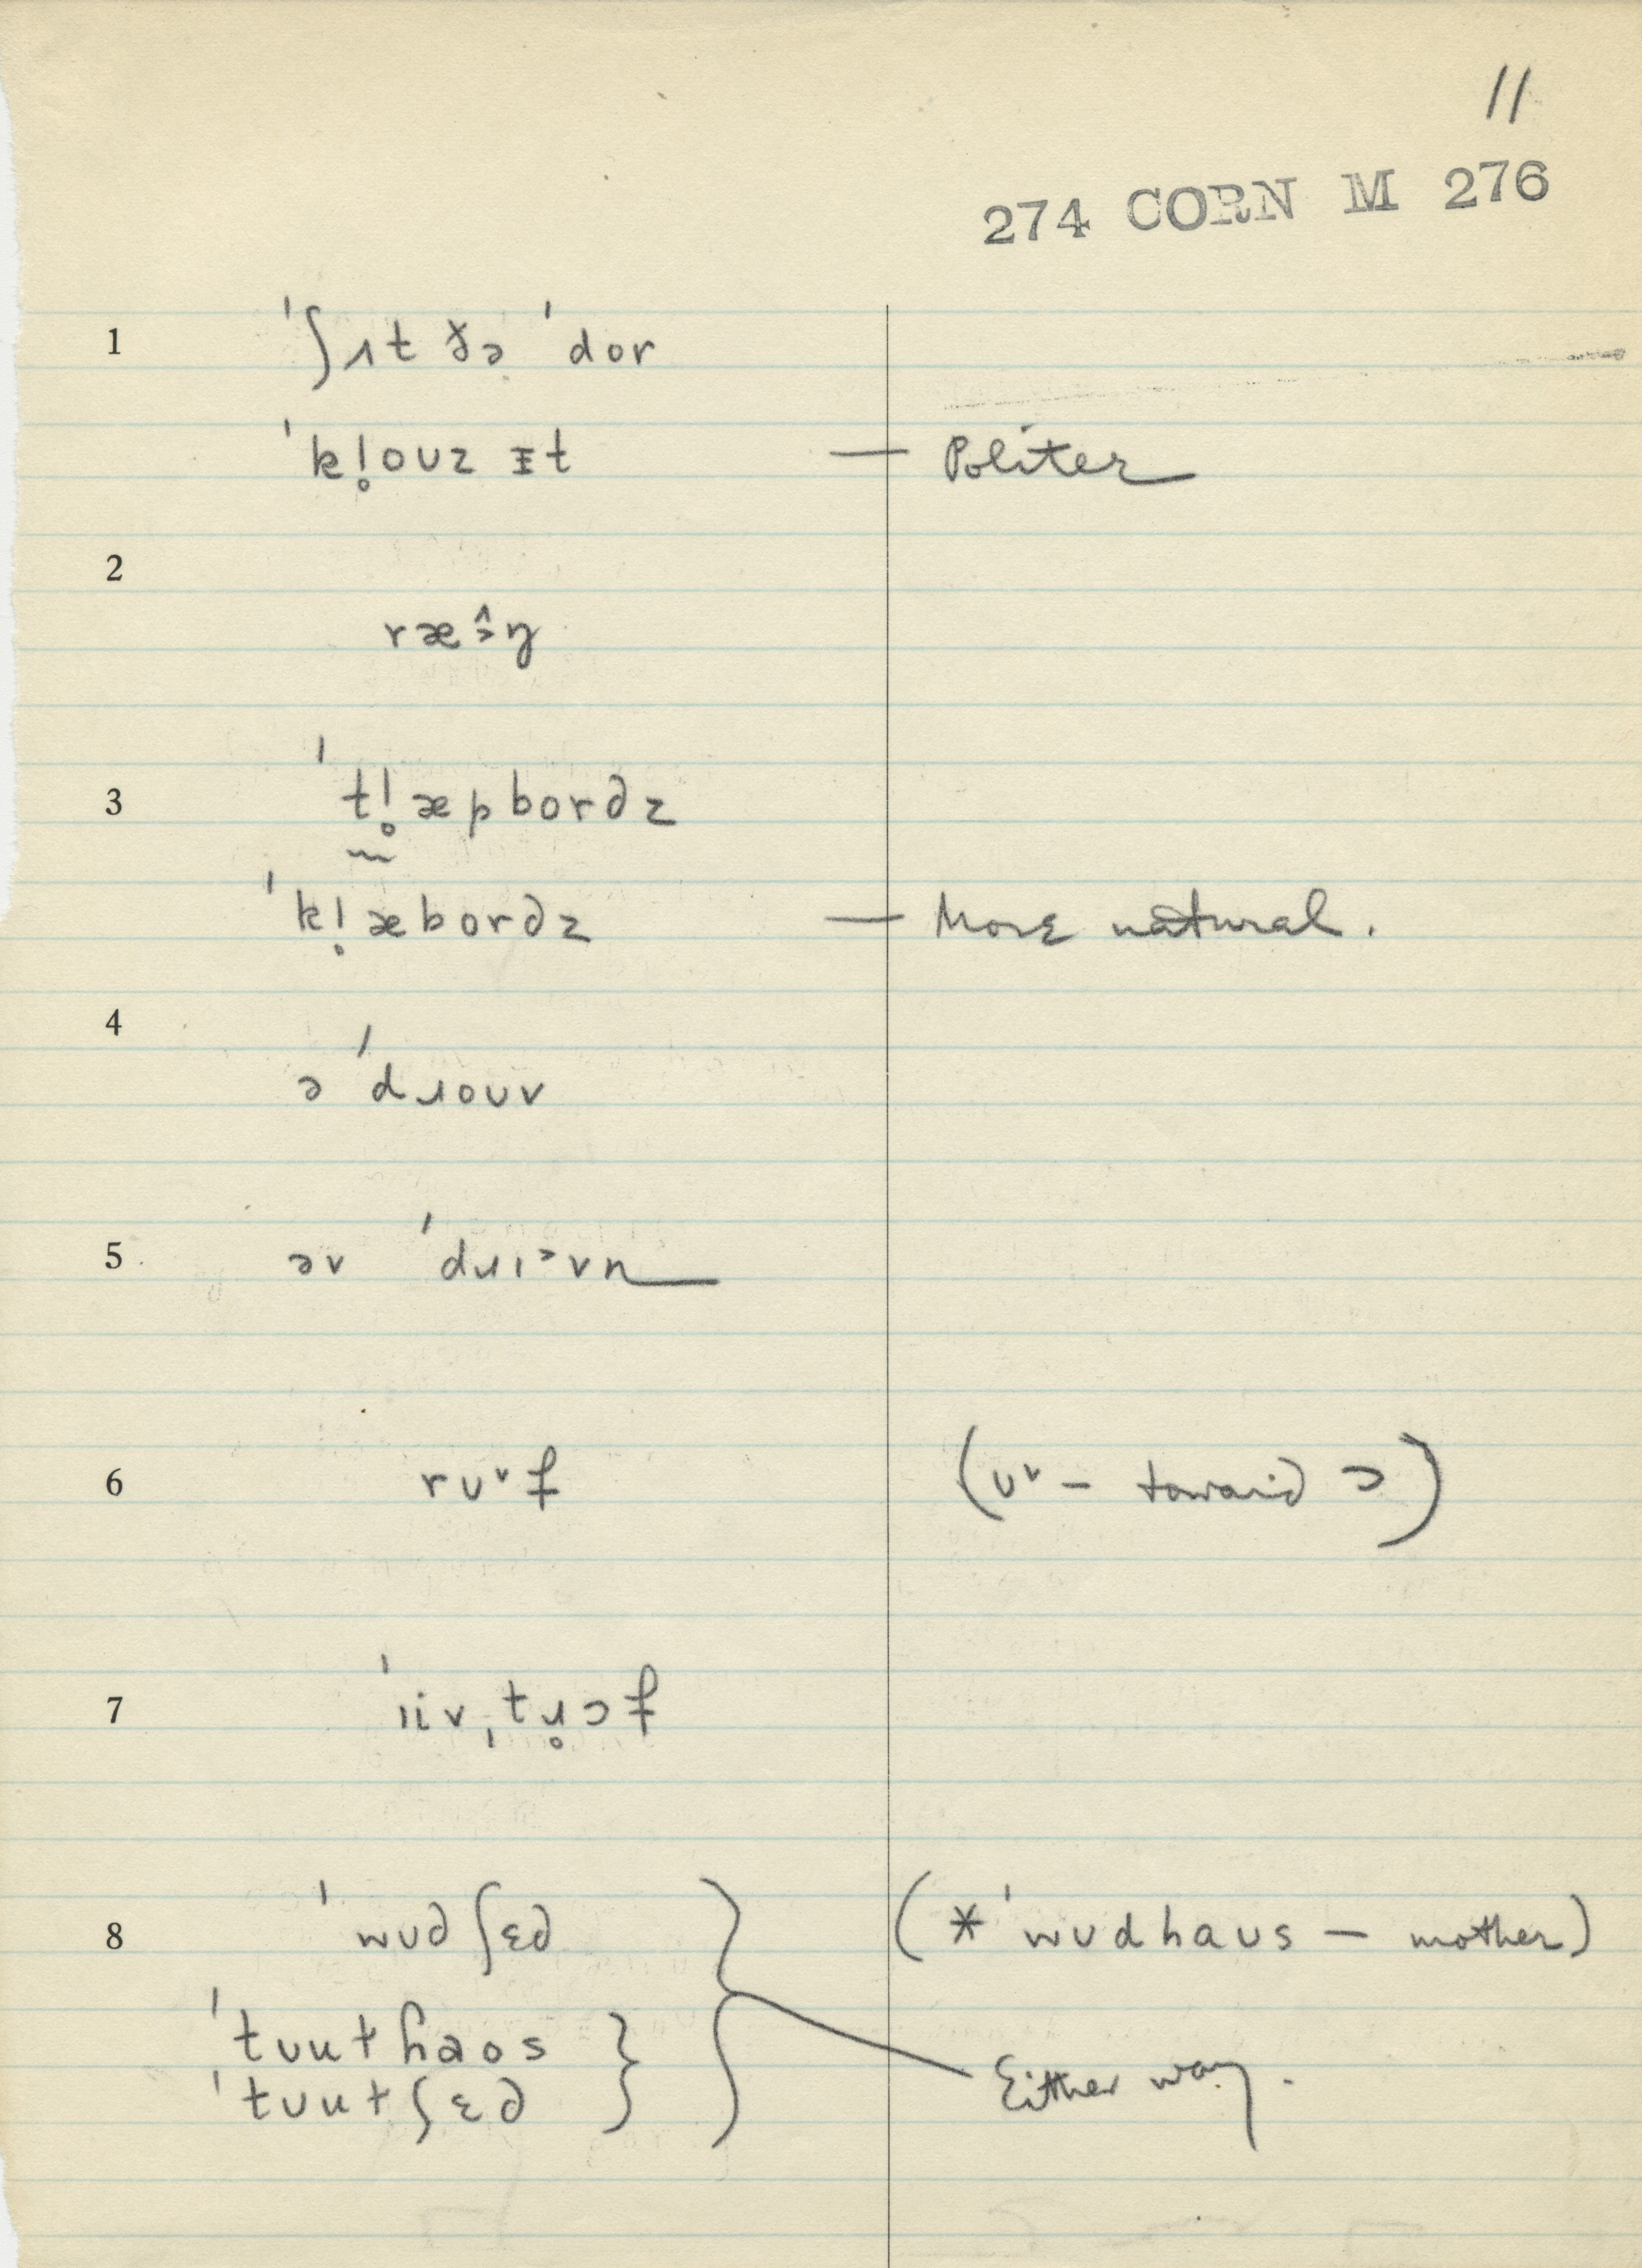 11
274 CORN M 276
1 ˈʃɪt ðə ˈdor
ˈkl̥oʊz ɪt — Politer
2
ræə̂ŋ
3 ˈtl̥æpbordz
ˈkl̥æbordz — More natural.
4
ə ˈdɹoʊv
5 əv ˈdɹɪᵊvn
6 rʊ˅f (ʊ˅ – toward ɔ)
7 ˈiivˌtɹ̥ɔf
8 ˈwʊdʃɛd (*ˈwʊdhaʊs – mother)
ˈtuʊthaos
ˈtuʊtʃɛd Either way.